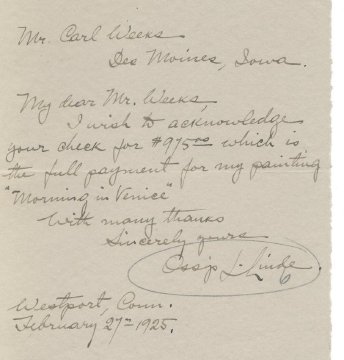 Mr. Carl Weeks
Des Moines, Iowa.
My dear Mr. Weeks,
I wish to acknowledge
your check for $975.00 which is
the full payment for my painting
"Morning in Venice"
With many thanks
Sincerely yours
Ossip L. Linde.
Westport, Conn.
February 27th 1925.